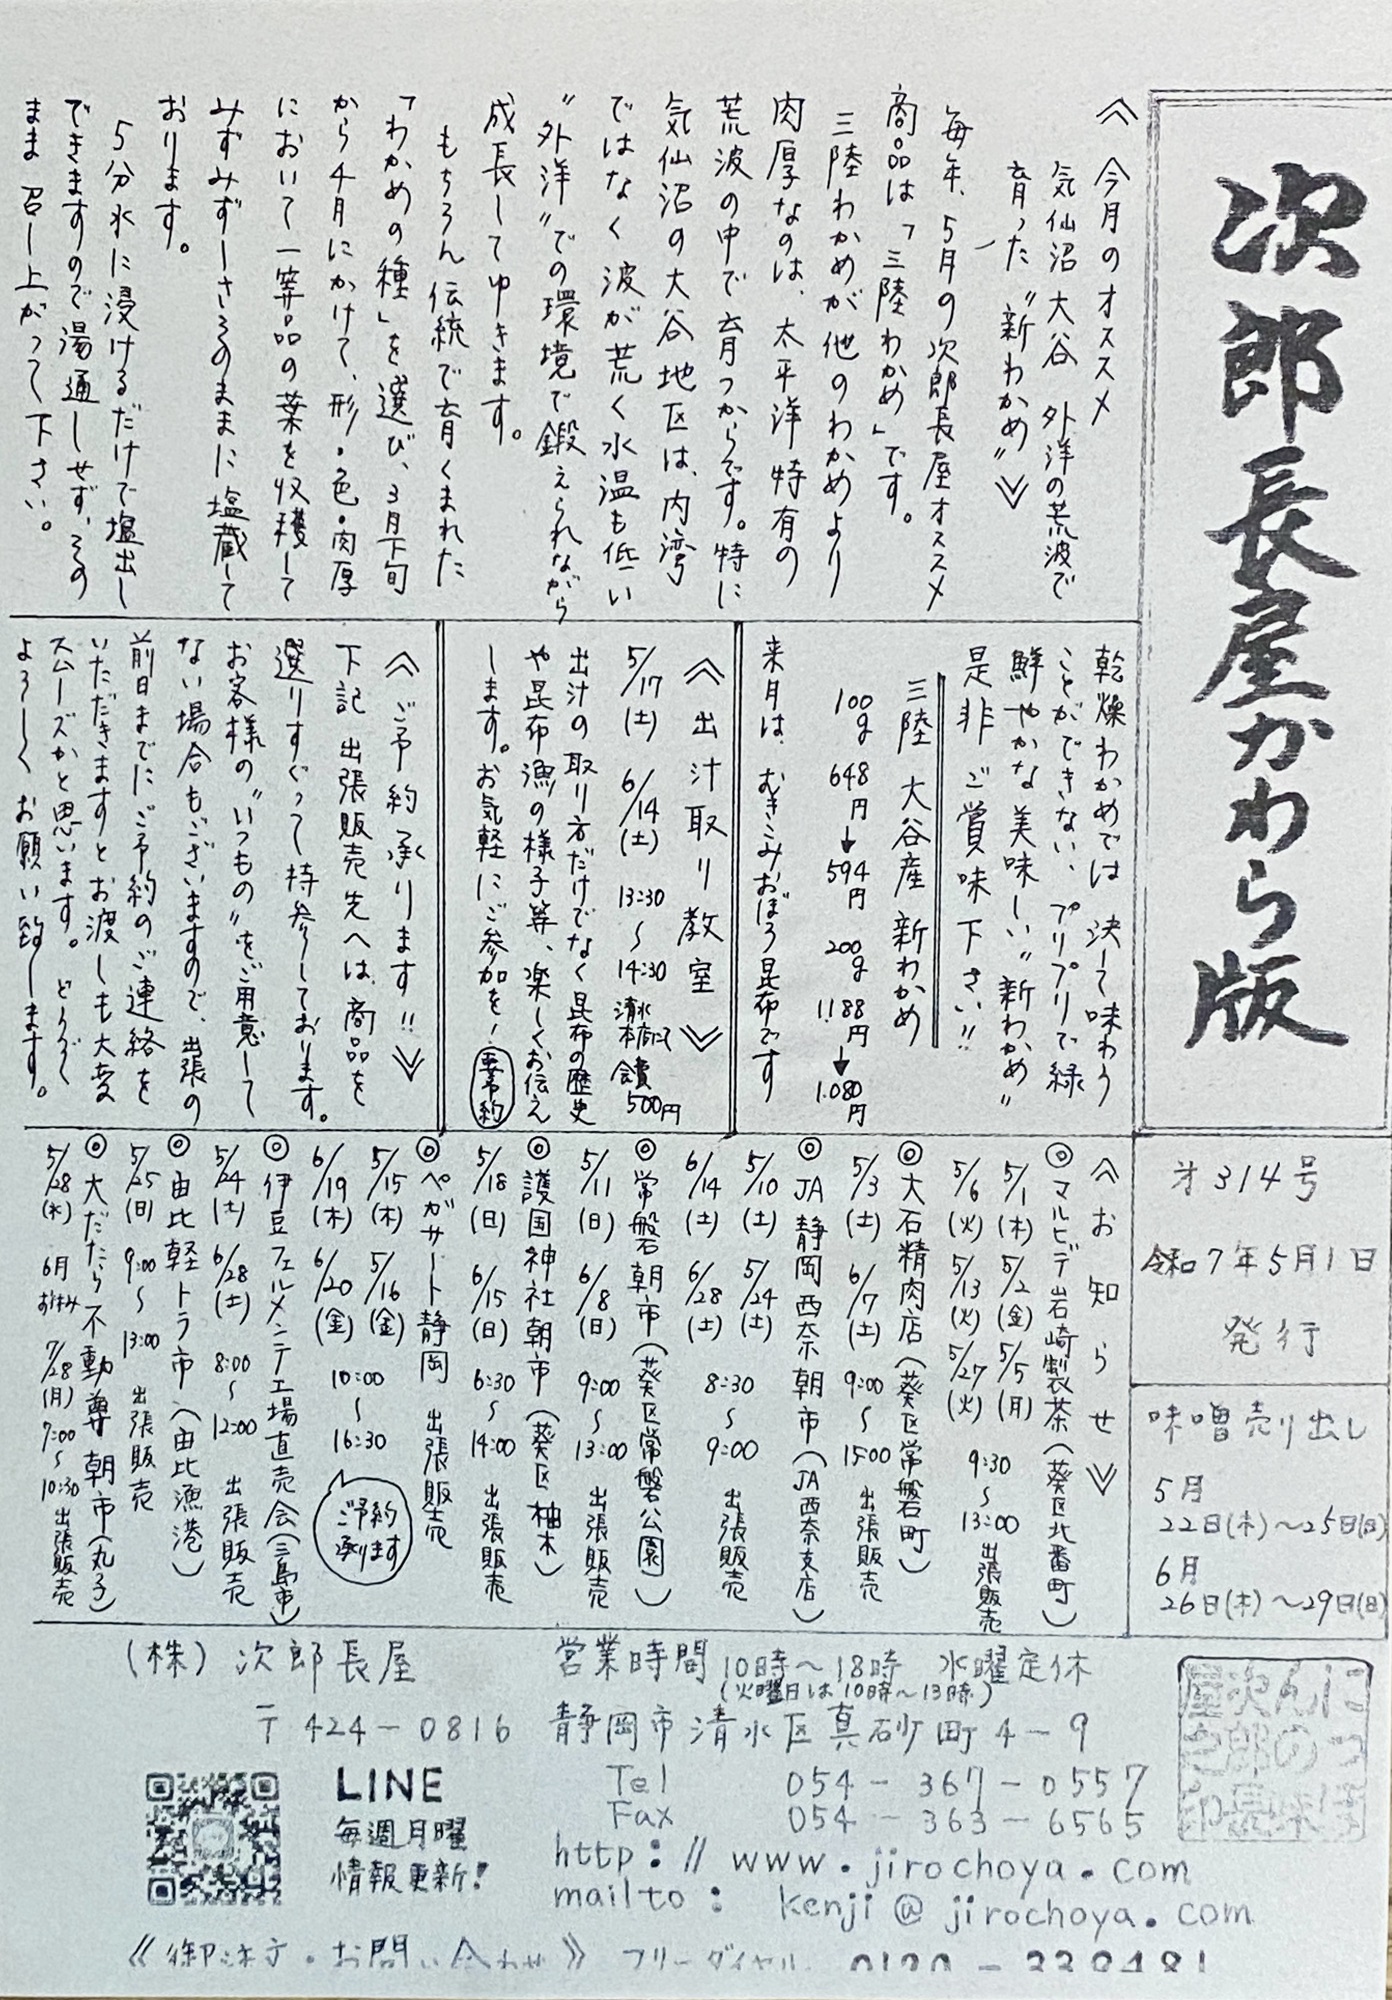 次郎長屋かわら版
《今月のオススメ
気仙沼 大谷 外洋の荒波で
育った〝新わかめ〟》
毎年、5月の次郎長屋オススメ
商品は「三陸わかめ」です。
三陸わかめが他のわかめより
肉厚なのは、太平洋特有の
荒波の中で育つからです。特に
気仙沼の大谷地区は、内湾
ではなく波が荒く水温も低い
〝外洋〟での環境で鍛えられながら
成長してゆきます。
もちろん伝統で育くまれた
「わかめの種」を選び、3月下旬
から4月にかけて、形・色・肉厚
において一等品の葉を収穫して
みずみずしさそのままに塩蔵して
おります。
5分水に浸けるだけで塩出し
できますので湯通しせず、その
まま召し上がって下さい。
乾燥わかめでは決して味わう
ことができない、プリプリで緑
鮮やかな美味しい〝新わかめ〟
是非ご賞味下さい!!
三陸 大谷産 新わかめ
100g 648円→594円 200g 1188円→1.080円
来月は、むきこみおぼろ昆布です
《出汁取り教室》
5/17(土) 6/14(土) 13:30〜14:30 清水本店にて 会費500円
出汁の取り方だけでなく昆布の歴史
や昆布漁の様子等、楽しくお伝え
します。お気軽にご参加を! 要予約
《ご予約承ります!!》
下記出張販売先へは、商品を
選りすぐって持参しております。
お客様の〝いつもの〟をご用意して
ない場合もございますので、出張の
前日までにご予約のご連絡を
いただきますとお渡しも大変
スムーズかと思います。どうぞ
よろしくお願い致します。
第314号
令和7年5月1日
発行
味噌売り出し
5月
22日(木)〜25日(日)
6月
26日(木)〜29日(日)
《お知らせ》
◎マルヒデ岩崎製茶(葵区北番町)
5/1(木) 5/2(金) 5/5(月)
5/6(火) 5/13(火) 5/27(火) 9:30〜13:00 出張販売
◎大石精肉店(葵区常磐町)
5/3(土) 6/7(土) 9:00〜15:00 出張販売
◎JA静岡西奈朝市(JA西奈支店)
5/10(土) 5/24(土)
6/14(土) 6/28(土) 8:30〜9:00 出張販売
◎常磐朝市(葵区常磐公園)
5/11(日) 6/8(日) 9:00〜13:00 出張販売
◎護国神社朝市(葵区柚木)
5/18(日) 6/15(日) 6:30〜14:00 出張販売
◎ペガサート静岡 出張販売
5/15(木) 5/16(金)
6/19(木) 6/20(金) 10:00〜16:30
ご予約承ります
◎伊豆フェルメンテ工場直売会(三島市)
5/24(土) 6/28(土) 8:00〜12:00 出張販売
◎由比軽トラ市(由比漁港)
5/25(日) 9:00〜13:00 出張販売
◎大だたら不動尊朝市(丸子)
5/28(水) 6月お休み 7/28(月) 7:00〜10:30 出張販売
(株)次郎長屋
営業時間 10時〜18時 水曜定休
(火曜日は10時〜13時)
〒424-0816 静岡市清水区真砂町4-9
Tel 054-367-0557
Fax 054-363-6565
http://www.jirochoya.com
mailto: kenji@jirochoya.com
LINE
毎週月曜
情報更新!
にっぽ
んの味
次郎長
屋之印
《御注文・お問い合わせ》 フリーダイヤル